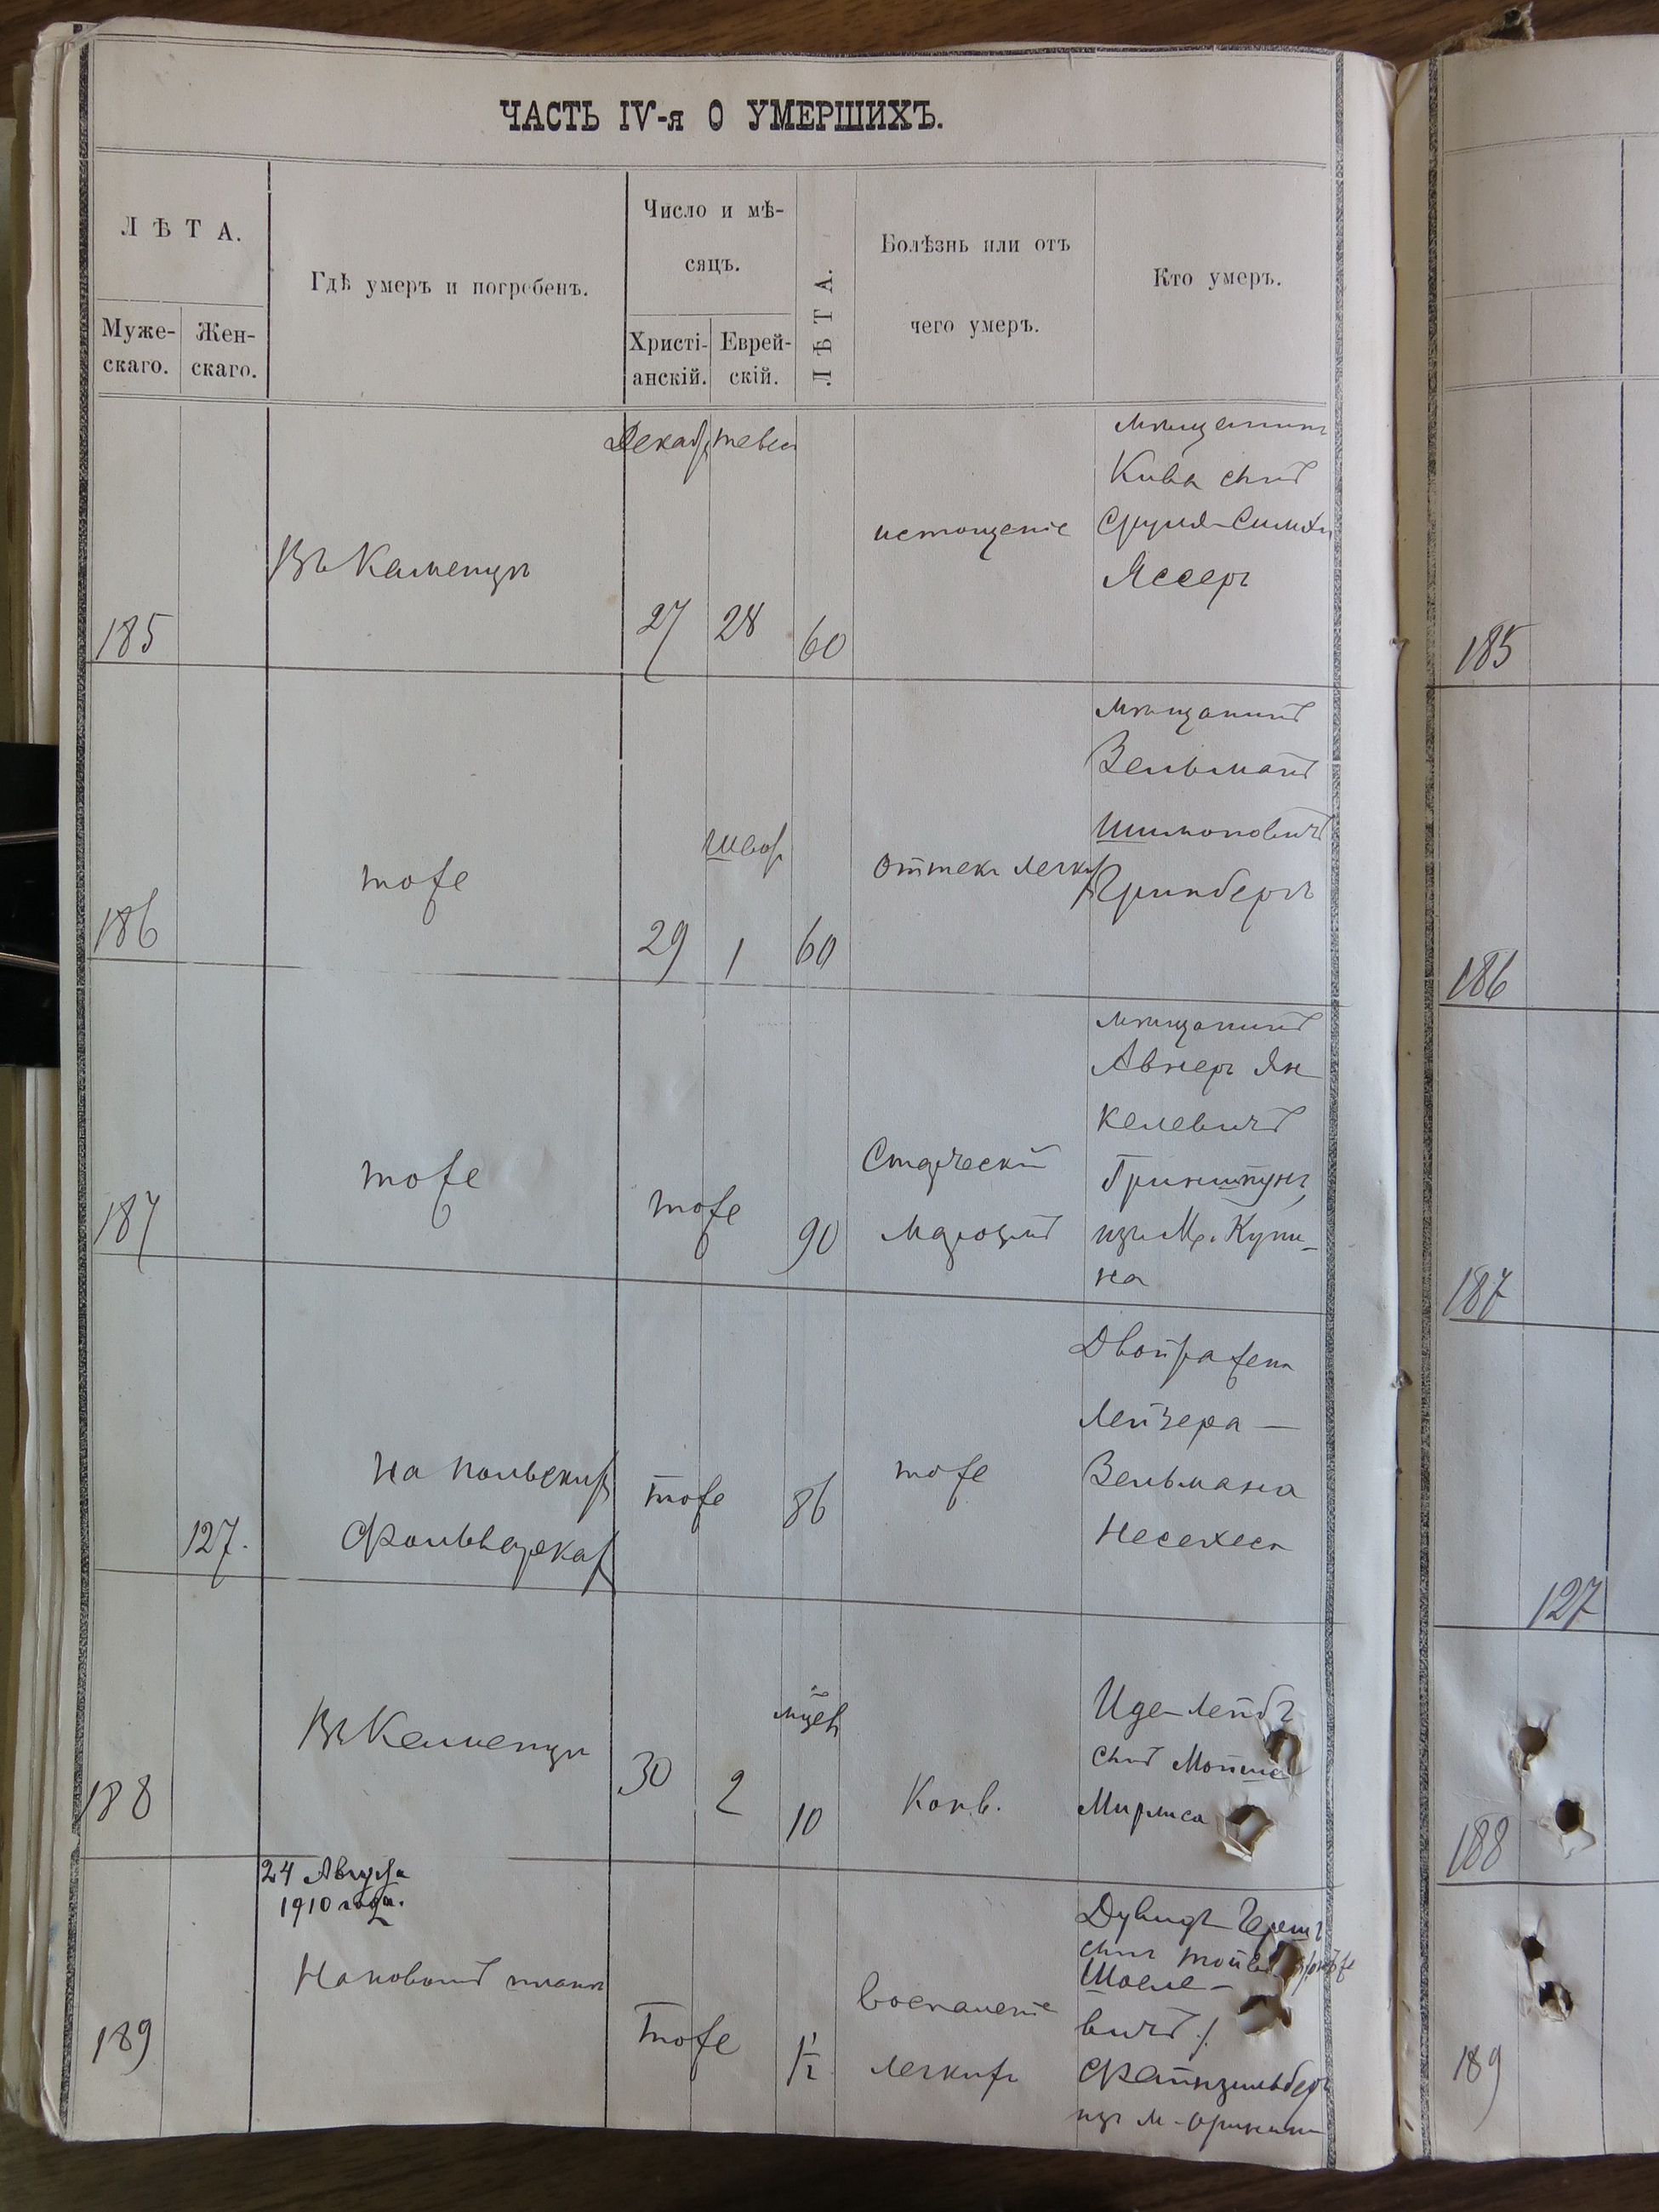 ЧАСТЬ IV-я О УМЕРШИХЪ.
ЛѢТА.
Муже-
скаго.
Жен-
скаго.
Гдѣ умеръ и погребенъ.
Число и мѣ-
сяцъ.
Христі-
анскій.
Еврей-
скій.
ЛѢТА.
Болѣзнь или отъ
чего умеръ.
Кто умеръ.
185
Въ Каменцѣ
Декабр
27
28
60
истощеніе
мѣщанинъ
Кива сынъ
Сруля-Симхи
Яссеръ
185
186
тоже
29
шват
1
60
оттекъ легких
мѣщанинъ
Зельманъ
Шимоновичъ
Гринбергъ
186
187
тоже
тоже
90
Старческий
маразмъ
мѣщанинъ
Авнеръ Ян
келевичъ
Гриншпунъ,
изъ М. Купи-
на
187
127.
на польских
Фольварках
тоже
86
тоже
Двойра жена
Лейзера-
Зельмана
Несехеса
127
188
Въ Каменцѣ
30
2
мцев
10
Конв.
Иде-Лейбъ
сынъ Мойше
Мирмиса
188
24 Августа
1910 года.
189
На новомъ планѣ
тоже
1½
воспаленіе
легкихъ
Дувидъ-Гершъ
сынъ
Шоеле-
вичъ
Файнзильберъ
изъ м. Оринин
189